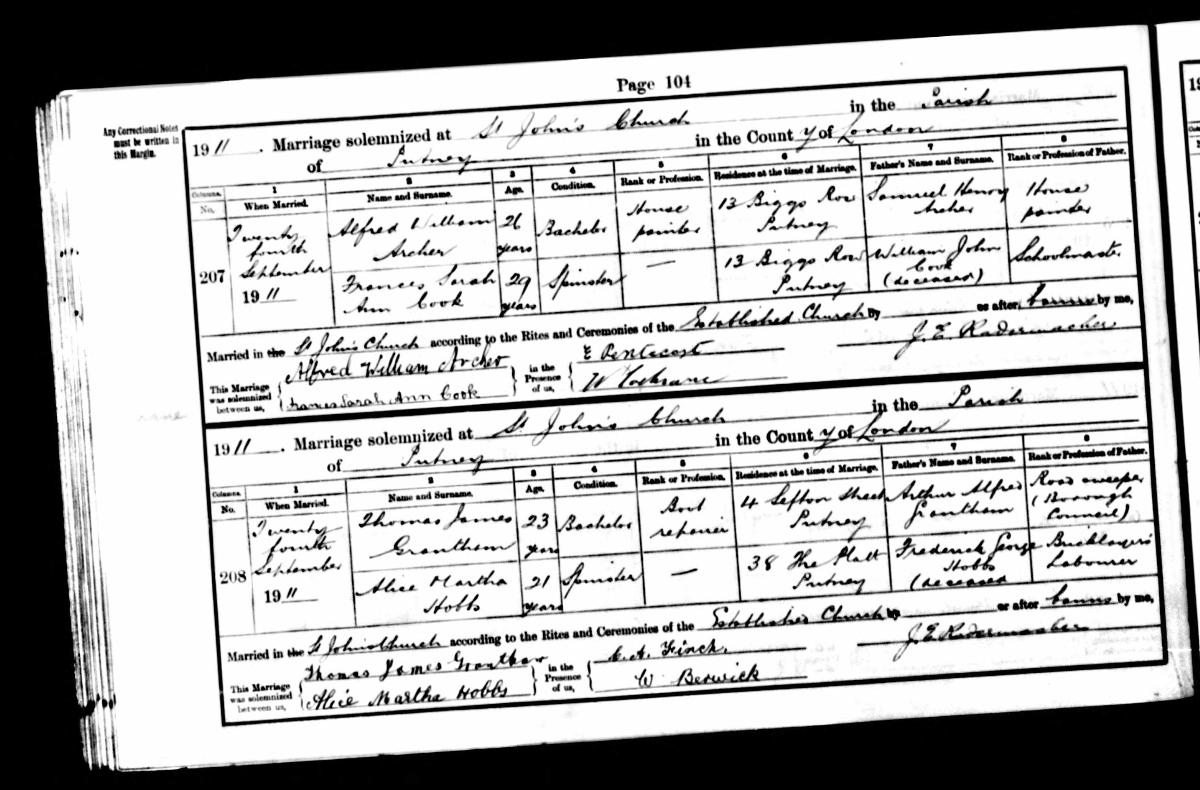 Page 104
Any Correctional Notes
must be written in
this Margin.
1911. Marriage solemnized at St John's Church in the Parish
of Putney in the County of London
Columns. 1 2 3 4 5 6 7 8
No. When Married. Name and Surname. Age. Condition. Rank or Profession. Residence at the time of Marriage. Father's Name and Surname. Rank or Profession of Father.
207
Twenty
fourth
September
1911
Alfred William
Archer
26
years
Bachelor
House
painter
13 Biggs Row
Putney
Samuel Henry
Archer
House
painter
Frances Sarah
Ann Cook
29
years
Spinster
—
13 Biggs Row
Putney
William John
Cook
(deceased)
Schoolmaster
Married in the St John's Church according to the Rites and Ceremonies of the Established Church by or after banns by me,
J. E. Radermacher
This Marriage
was solemnized
between us,
Alfred William Archer
Frances Sarah Ann Cook
in the
Presence
of us,
E Pentecost
W Cochrane
1911. Marriage solemnized at St John's Church in the Parish
of Putney in the County of London
Columns. 1 2 3 4 5 6 7 8
No. When Married. Name and Surname. Age. Condition. Rank or Profession. Residence at the time of Marriage. Father's Name and Surname. Rank or Profession of Father.
208
Twenty
fourth
September
1911
Thomas James
Grantham
23
years
Bachelor
repairer
4 Sefton Street
Putney
Arthur Alfred
Grantham
Road sweeper
(Borough
Council)
Alice Martha
Hobbs
21
years
Spinster
—
38 The Platt
Putney
Frederick George
Hobbs
(deceased
Bricklayers
Labourer
Married in the St Johns Church according to the Rites and Ceremonies of the Established Church by or after banns by me,
J. E. Radermacher
This Marriage
was solemnized
between us,
Thomas James Grantham
Alice Martha Hobbs
in the
Presence
of us,
A. Finch.
W Berwick